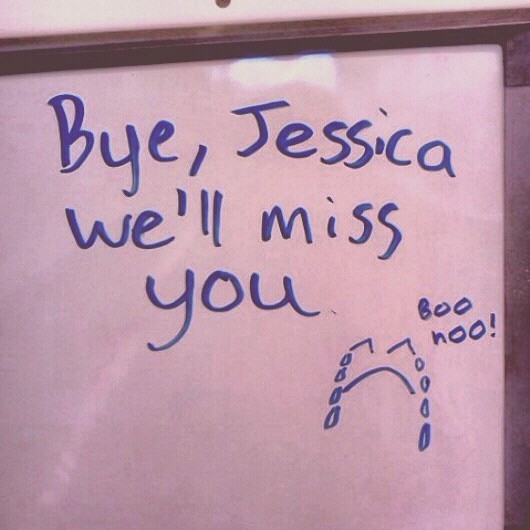 Bye, Jessica
we'll miss
you
Boo
hoo!